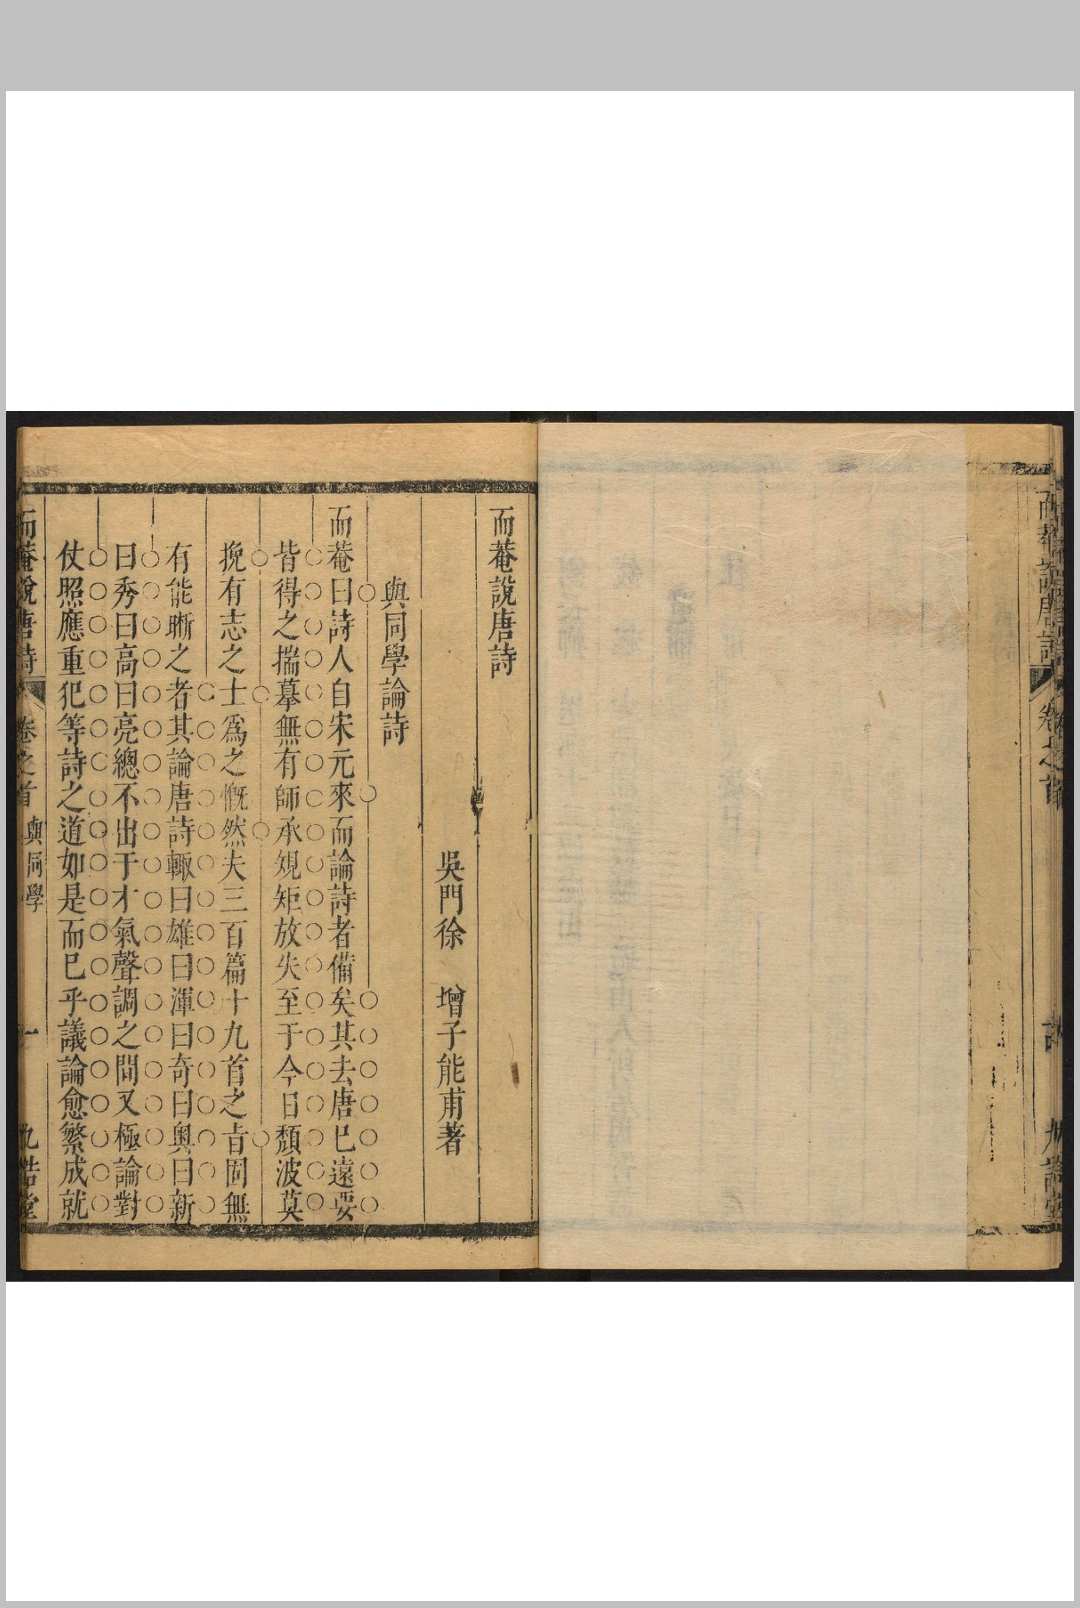 而菴說唐詩
卷之首
九誥堂
而菴說唐詩
吳門徐　增子能甫著
與同學論詩
而菴曰詩人自宋元來而論詩者備矣其去唐已遠要
皆得之揣摹無有師承規矩放失至于今日頹波莫
挽有志之士爲之慨然夫三百篇十九首之旨固無
有能晰之者其論唐詩輙曰雄曰渾曰奇曰奧曰新
曰秀曰高曰亮總不出于才氣聲調之間又極論對
仗照應重犯等詩之道如是而已乎議論愈繁成就
而菴說唐詩
卷之首
與同學
一
九誥堂